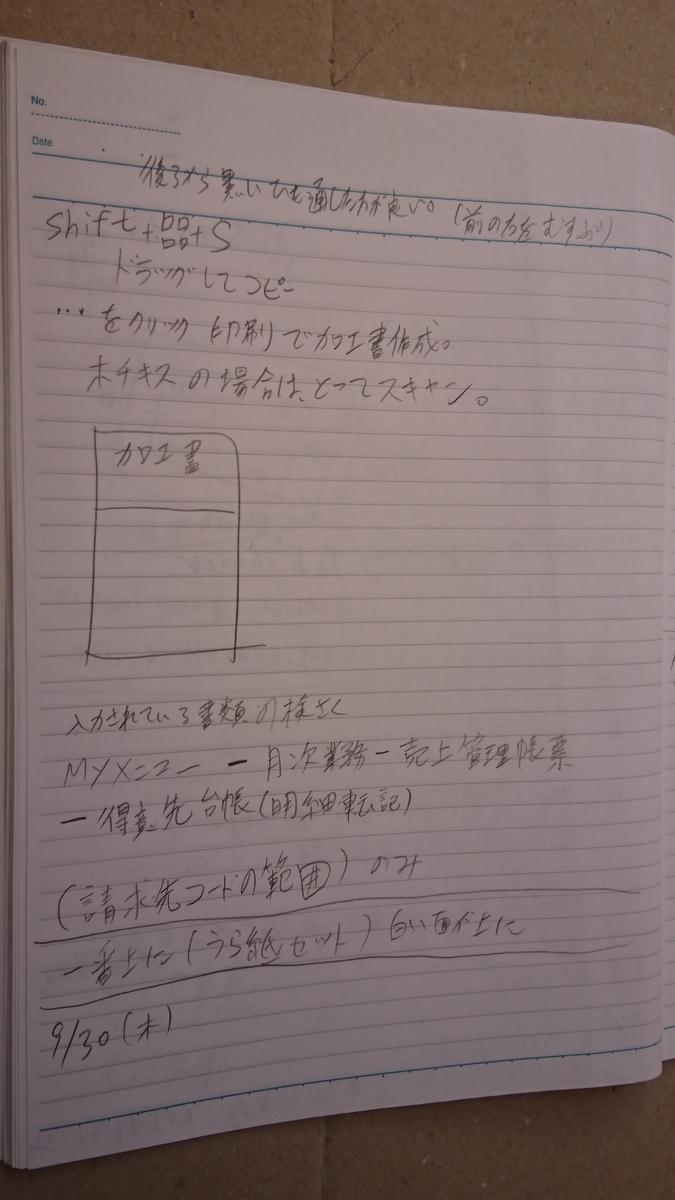 No.
Date
後ろから黒いひも通した方が良い。(前の方をむすぶ)
Shift + + S
ドラッグしてコピー
… をクリック 印刷で加工書作成。
ホチキスの場合は、とってスキャン。
加工書
入力されている書類の検さく
MYメニュー ー 月次業務 ー 売上管理帳票
ー 得意先台帳(明細転記)
(請求先コードの範囲) のみ
一番上に(うら紙セット) 白い面が上に
9/30(木)